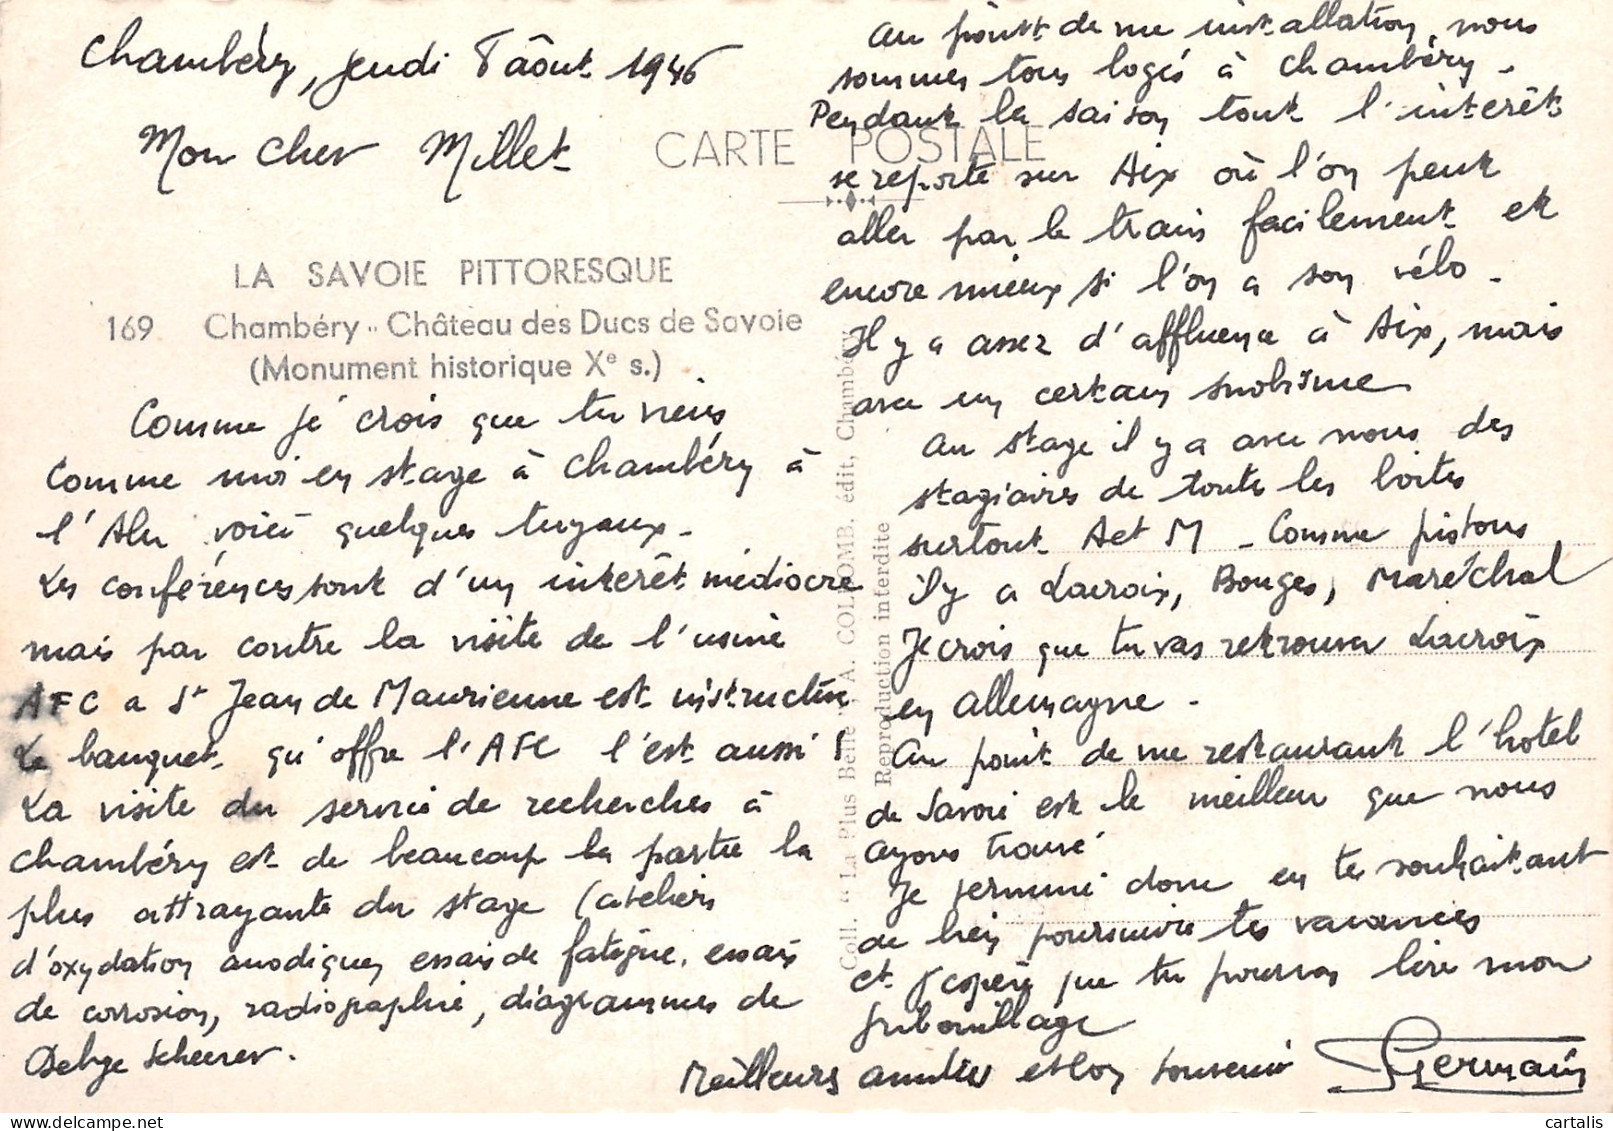 Chambéry, jeudi 8 août 1946
Mon cher Millet
CARTE POSTALE
LA SAVOIE PITTORESQUE
169 Chambéry - Château des Ducs de Savoie
(Monument historique Xe s.)
Comme je crois que tu viens
comme moi en stage à Chambéry à
l'Alu voici quelques tuyaux.
Les conférences sont d'un intérêt médiocre
mais par contre la visite de l'usine
AFC a St Jean de Maurienne est instructive
Le banquet qu'offre l'AFC l'est aussi !
La visite du service de recherches à
Chambéry est de beaucoup la partie la
plus attrayante du stage (ateliers
d'oxydation anodique, essais de fatigue, essais
de corrosion, radiographie, diagrammes de
Debye Scheerer.
au point de vue installation, nous
sommes tous logés à Chambéry.
Pendant la saison tout l'intérêt
se reporte sur Aix où l'on peut
aller par le train facilement et
encore mieux si l'on a son vélo.
Il y a assez d'affluence à Aix, mais
avec un certain snobisme
Au stage il y a avec nous des
stagiaires de toutes les boites
surtout A et M - Comme pistons
il y a Lacroix, Bouges, Maréchal
Je crois que tu vas retrouver Lacroix
en Allemagne.
Au point de vue restaurant l'hotel
de Savoie est le meilleur que nous
ayons trouvé
Je termine donc en te souhaitant
de bien poursuivre tes vacances
et j'espère que tu pourras lire mon
gribouillage
Meilleurs amitiés et bon souvenir Germain
Coll. "La Plus Belle", A. COLLOMB, édit, Chambéry
Reproduction interdite
cartalis